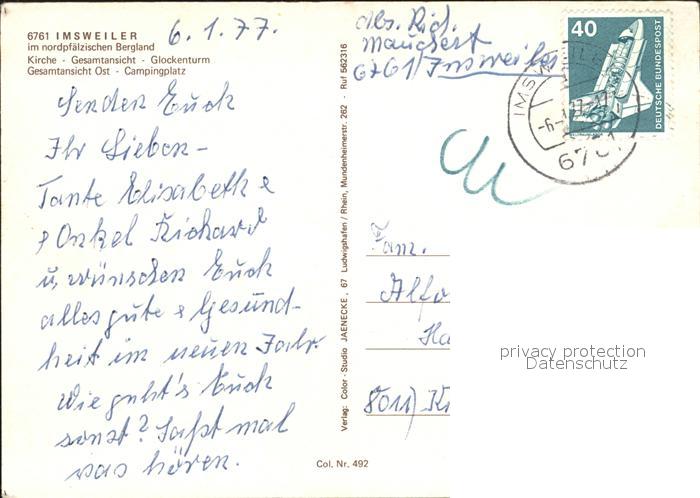 6761 IMSWEILER
im nordpfälzischen Bergland
Kirche - Gesamtansicht - Glockenturm
Gesamtansicht Ost - Campingplatz
6.1.77.
Senden Euch
Ihr Lieben -
Tante Elisabeth &
& Onkel Richard
u. wünschen Euch
alles gute & Gesund-
heit im neuen Jahr.
Wie geht's Euch
sonst? Laßt mal
was hören.
Verlag: Color-Studio JAENECKE, 67 Ludwigshafen / Rhein, Mundenheimerstr. 262 - Ruf 562316
Col. Nr. 492
abs. Rich.
6761 Imsweiler
40
DEUTSCHE BUNDESPOST
IMSWEILER
6761
Fam.
Alfo
Ha
8011) Ki
privacy protection
Datenschutz